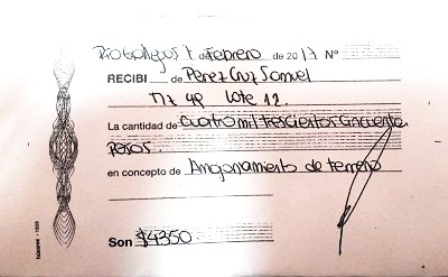 Rio Gallegos 7 de Febrero de 2017 Nº
RECIBI de Perez Cruz Samuel
Mz 49 Lote 12.
La cantidad de Cuatro mil tresciertos cincuenta
pesos.
en concepto de Amojonamiento de terreno
Son $4350.